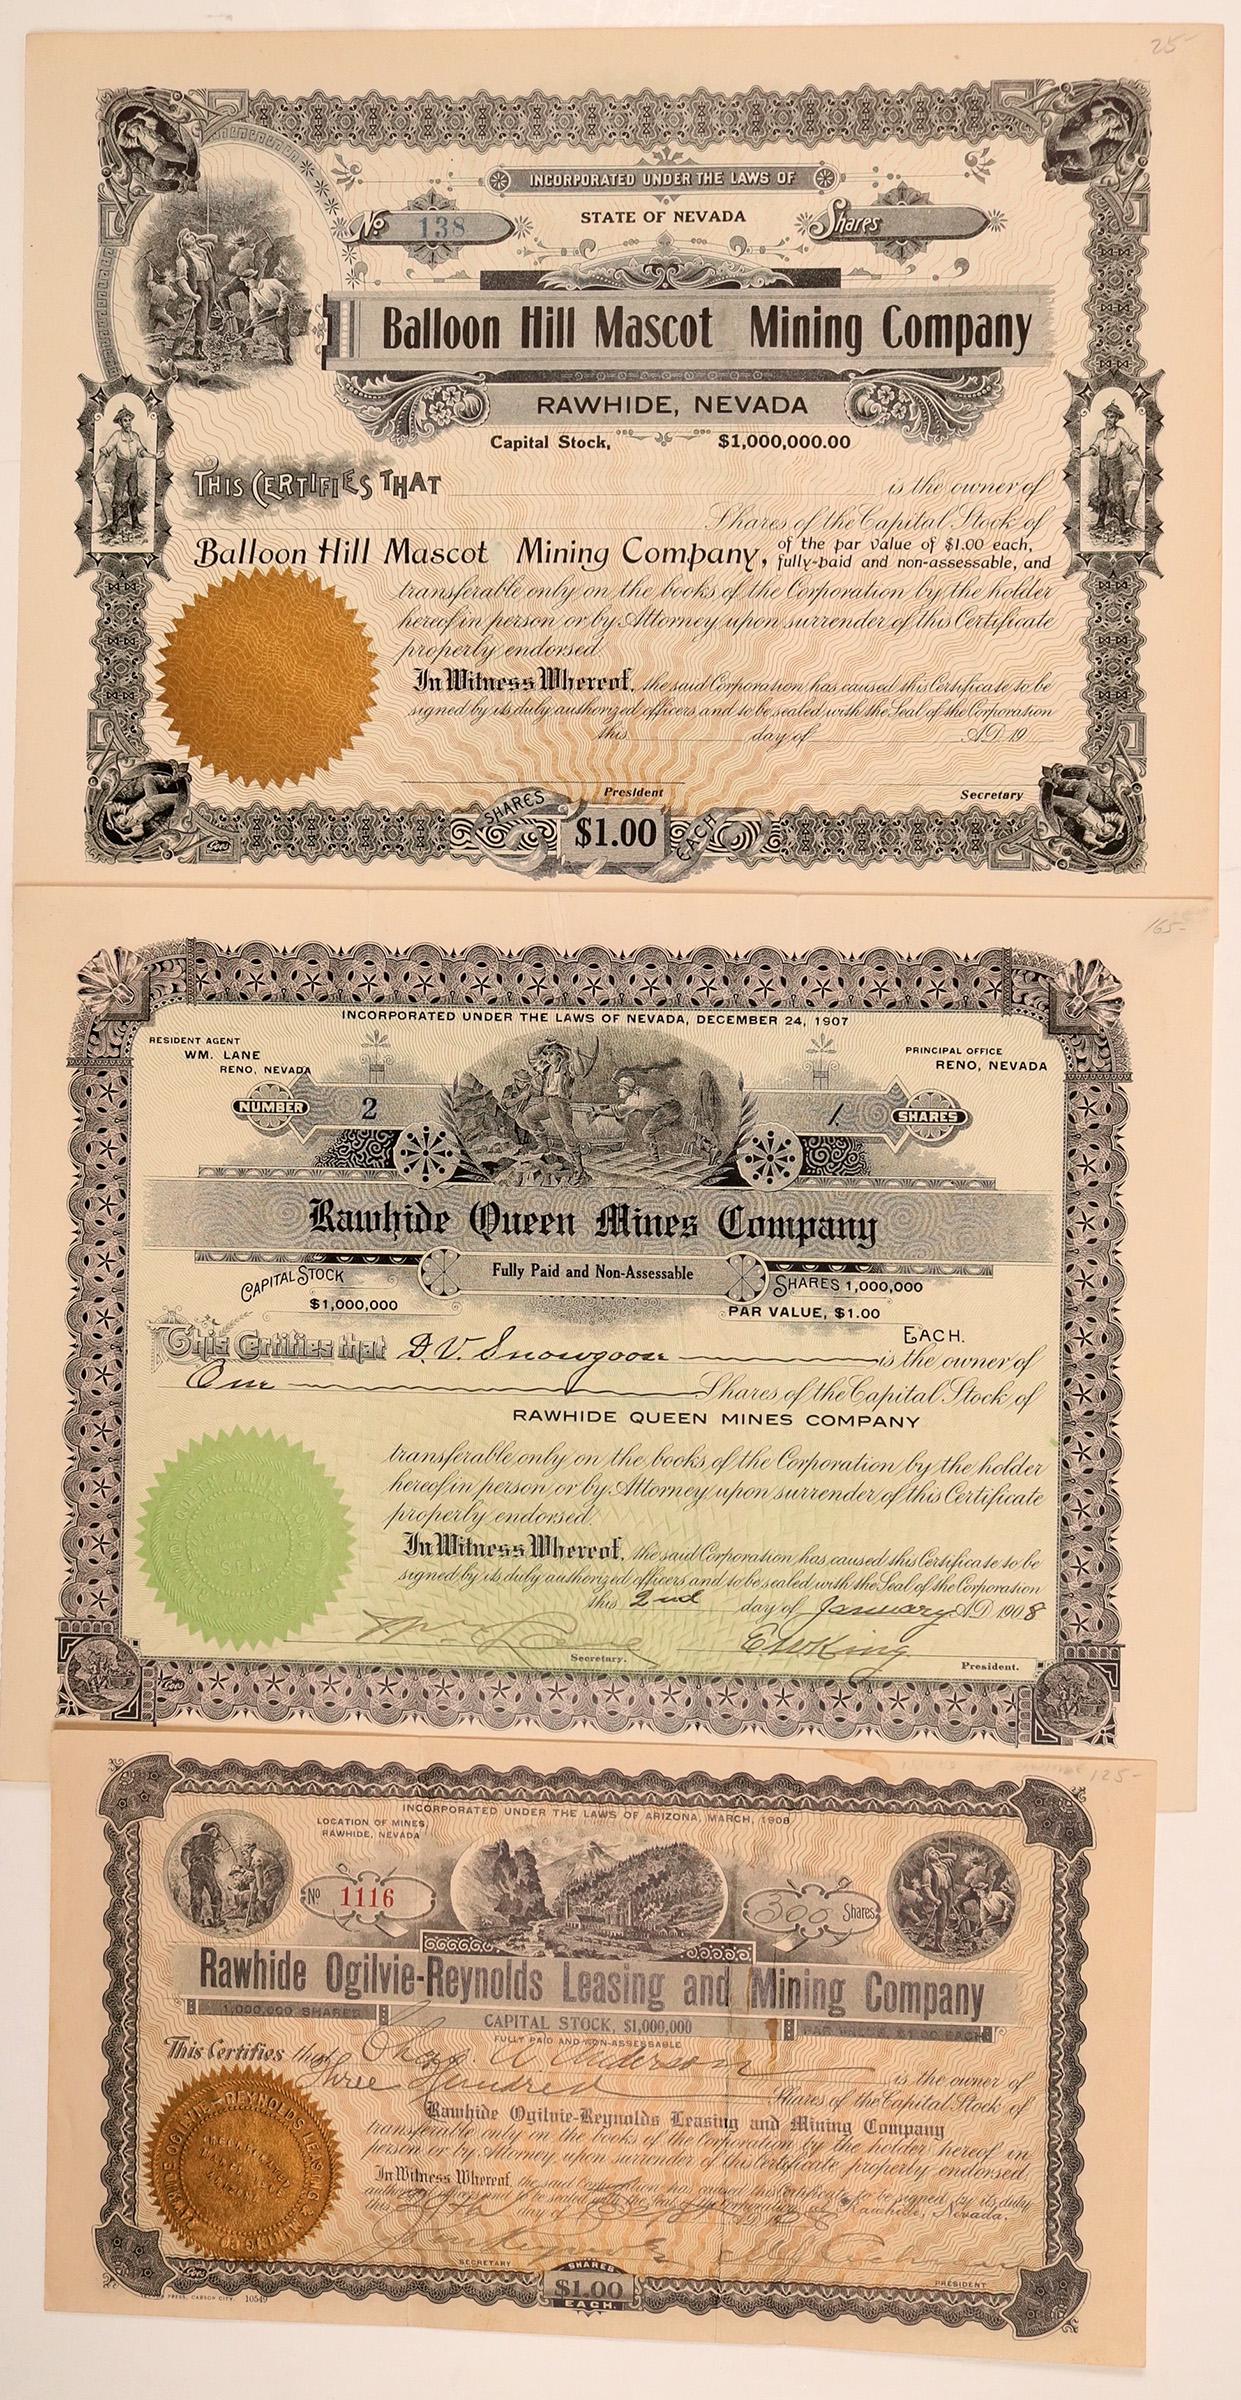 25-
INCORPORATED UNDER THE LAWS OF
STATE OF NEVADA
No 138
Shares
Balloon Hill Mascot Mining Company
RAWHIDE, NEVADA
Capital Stock, $1,000,000.00
THIS CERTIFIES THAT is the owner of
Shares of the Capital Stock of
Balloon Hill Mascot Mining Company, of the par value of $1.00 each,
fully-paid and non-assessable, and
transferable only on the books of the Corporation by the holder
hereof in person or by Attorney upon surrender of this Certificate
properly endorsed.
In Witness Whereof, the said Corporation has caused this Certificate to be
signed by its duly authorized officers and to be sealed with the Seal of the Corporation
this day of A.D. 19
President Secretary
SHARES $1.00 EACH
165-
INCORPORATED UNDER THE LAWS OF NEVADA, DECEMBER 24, 1907
RESIDENT AGENT
WM. LANE
RENO, NEVADA
PRINCIPAL OFFICE
RENO, NEVADA
NUMBER 2
1 SHARES
Rawhide Queen Mines Company
Fully Paid and Non-Assessable
CAPITAL STOCK
$1,000,000
SHARES 1,000,000
PAR VALUE, $1.00
EACH.
This Certifies that D. V. Snowgoose is the owner of
One Shares of the Capital Stock of
RAWHIDE QUEEN MINES COMPANY
transferable only on the books of the Corporation by the holder
hereof in person or by Attorney upon surrender of this Certificate
properly endorsed.
In Witness Whereof, the said Corporation has caused this Certificate to be
signed by its duly authorized officers and to be sealed with the Seal of the Corporation
this 2nd day of January A.D. 1908
E W King
Secretary. President.
125-
INCORPORATED UNDER THE LAWS OF ARIZONA, MARCH, 1908
LOCATION OF MINES
RAWHIDE, NEVADA
No 1116
300 Shares
Rawhide Ogilvie-Reynolds Leasing and Mining Company
1,000,000 SHARES CAPITAL STOCK, $1,000,000 PAR VALUE $1.00 EACH
FULLY PAID AND NON-ASSESSABLE
This Certifies that Chas. A Anderson is the owner of
Three Hundred Shares of the Capital Stock of
Rawhide Ogilvie-Reynolds Leasing and Mining Company
transferable only on the books of the Corporation by the holder hereof in
person or by Attorney upon surrender of this Certificate properly endorsed.
In Witness Whereof, the said Corporation has caused this Certificate to be signed by its duly
authorized officers and to be sealed with the Seal of the Corporation at Rawhide, Nevada.
this 29th day of Sept A.D. 1908
SECRETARY PRESIDENT
SHARES
$1.00
EACH.
PRESS, CARSON CITY. 10549